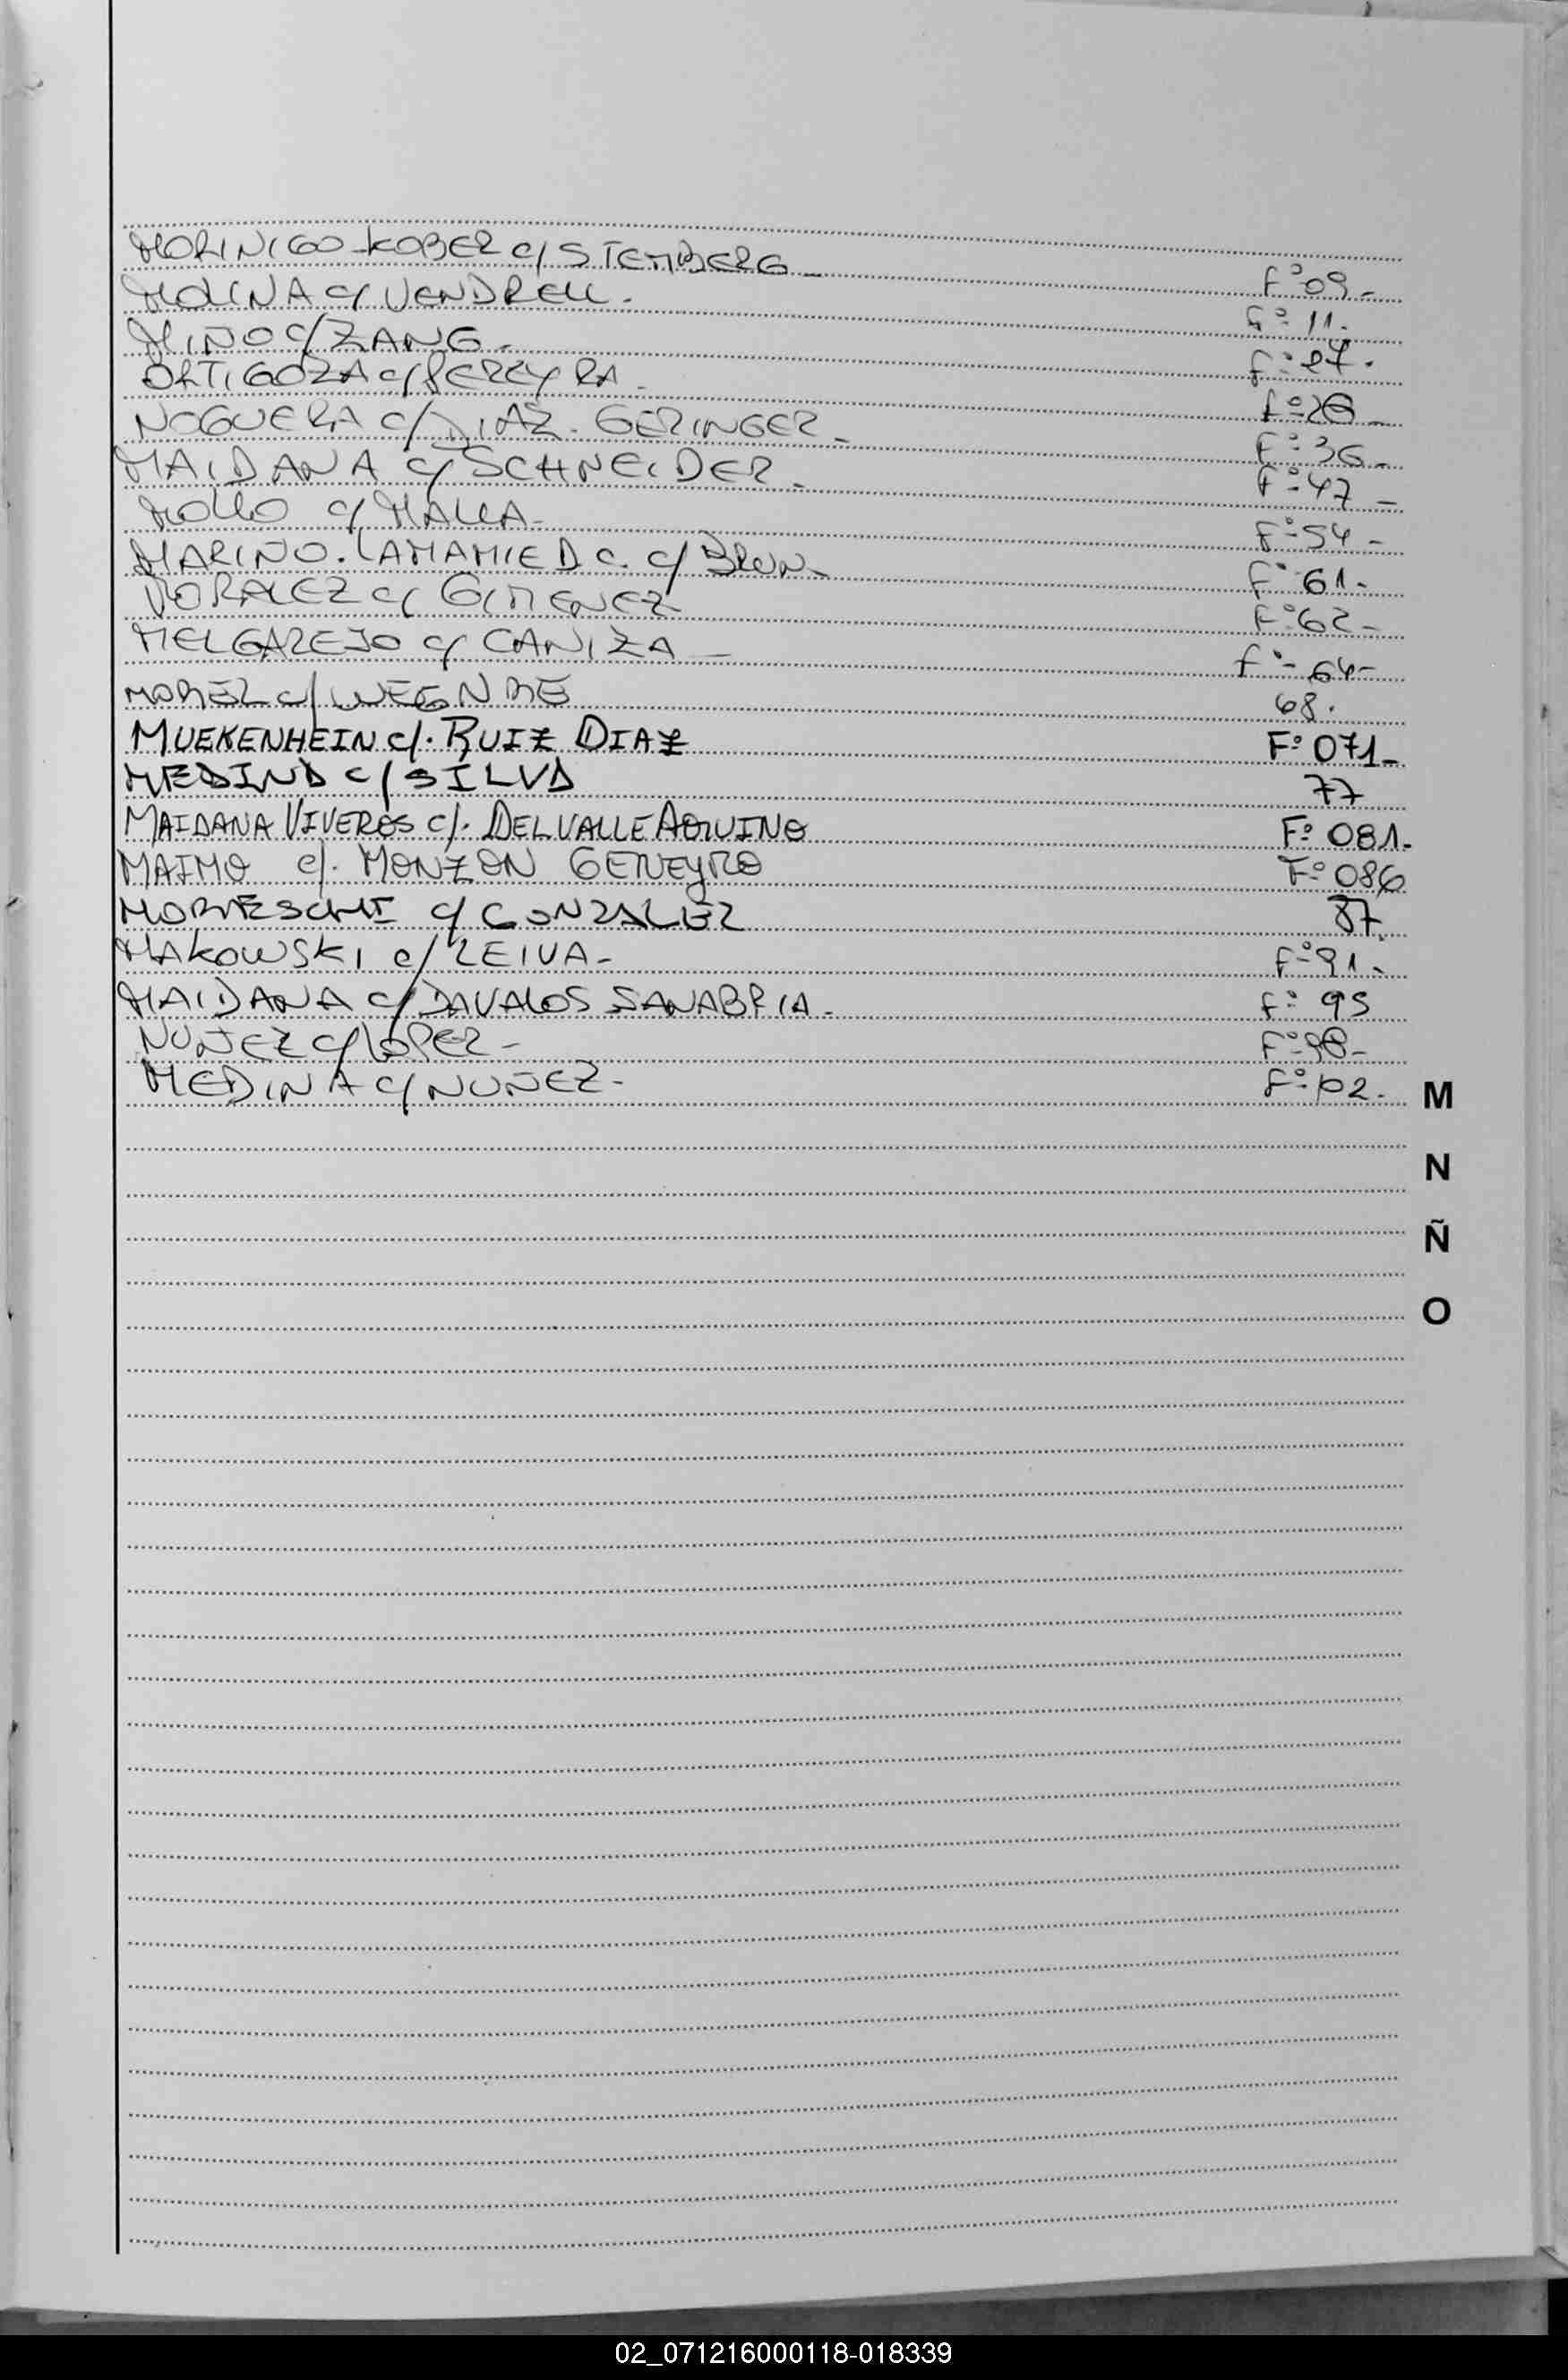 MORINIGO-KOBER c/ STEMBERG - Fº 09-
MOLINA c/ VENDRELL. Fº 11.
MIÑO c/ ZANG - Fº 27.
ORTIGOZA c/ PEREYRA. Fº 28-
NOGUERA c/ DIAZ. GERINGER - Fº 36-
MAIDANA c/ SCHNEIDER - Fº 47-
MOLLO c/ MALLA- Fº 54-
MARINO. LAMAMIE D C. c/ BRUN- Fº 61-
MORALEZ c/ GIMENEZ- Fº 62-
MELGAREJO c/ CANIZA - Fº- 64-
MOREL c/ WEGNRE 68.
MUEKENHEIN c/. RUIZ DIAZ Fº 071-
MEDINA c/ SILVA 77
MAIDANA VIVEROS c/. DELVALLE AQUINO Fº 081.
MAIMO c/. MONZON GENEYRO Fº 086
c/ GONZALEZ 87.
MAKOWSKI c/ LEIVA- Fº 91.
MAIDANA c/ DAVALOS SANABRIA. Fº 95
NUÑEZ c/ LOPEZ- Fº 98-
MEDINA c/ NUÑEZ- Fº 102.
M
N
Ñ
O
02_071216000118-018339